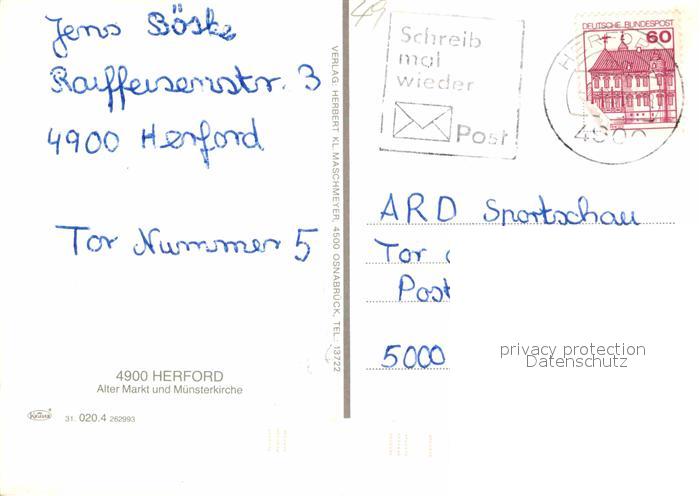 Jens Böske
Raiffeisenstr. 3
4900 Herford
Tor Nummer 5
4900 HERFORD
Alter Markt und Münsterkirche
31. 020.4 262993
VERLAG: HERBERT KL. MASCHMEYER, 4500 OSNABRÜCK, TEL.: 13722
49
Schreib
mal
wieder
Post
DEUTSCHE BUNDESPOST
60
HERFORD
4900
ARD Sportschau
Tor
Post
5000
privacy protection
Datenschutz